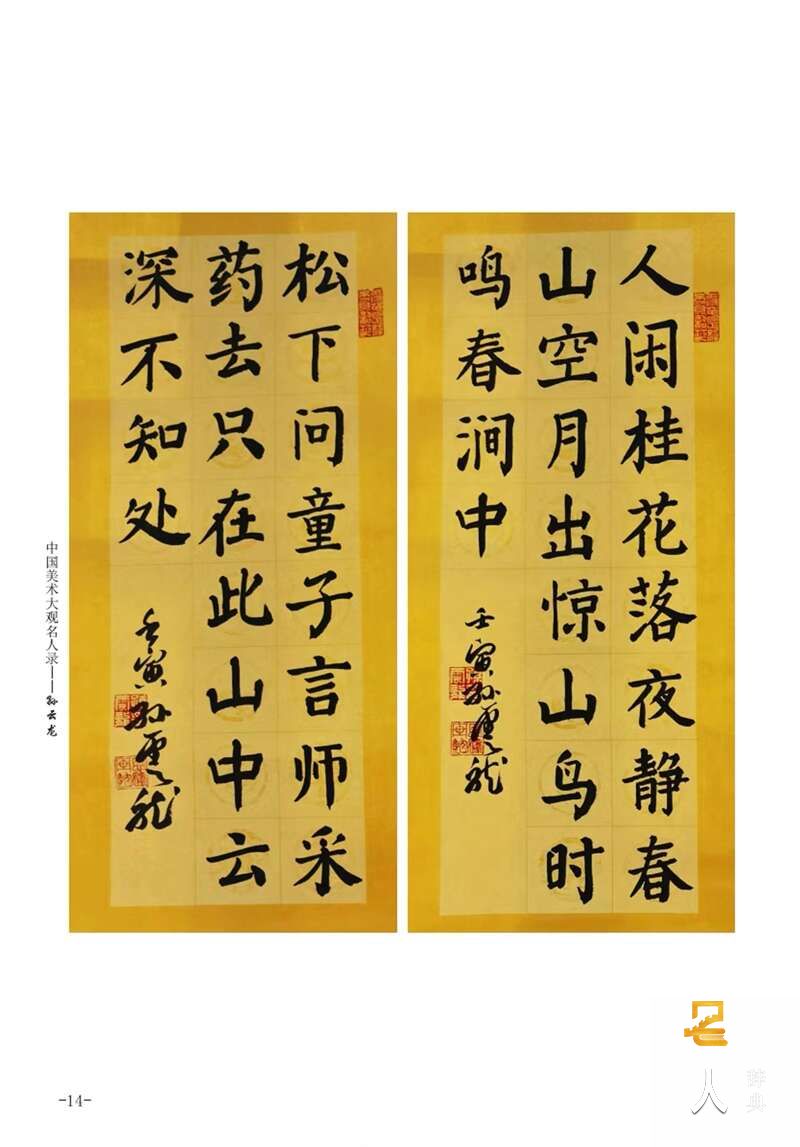 人闲桂花落夜静春
山空月出惊山鸟时
鸣春涧中
壬寅孙云龙
松下问童子言师采
药去只在此山中云
深不知处
壬寅孙云龙
中国美术大观名人录——孙云龙
-14-
名
人
辞典